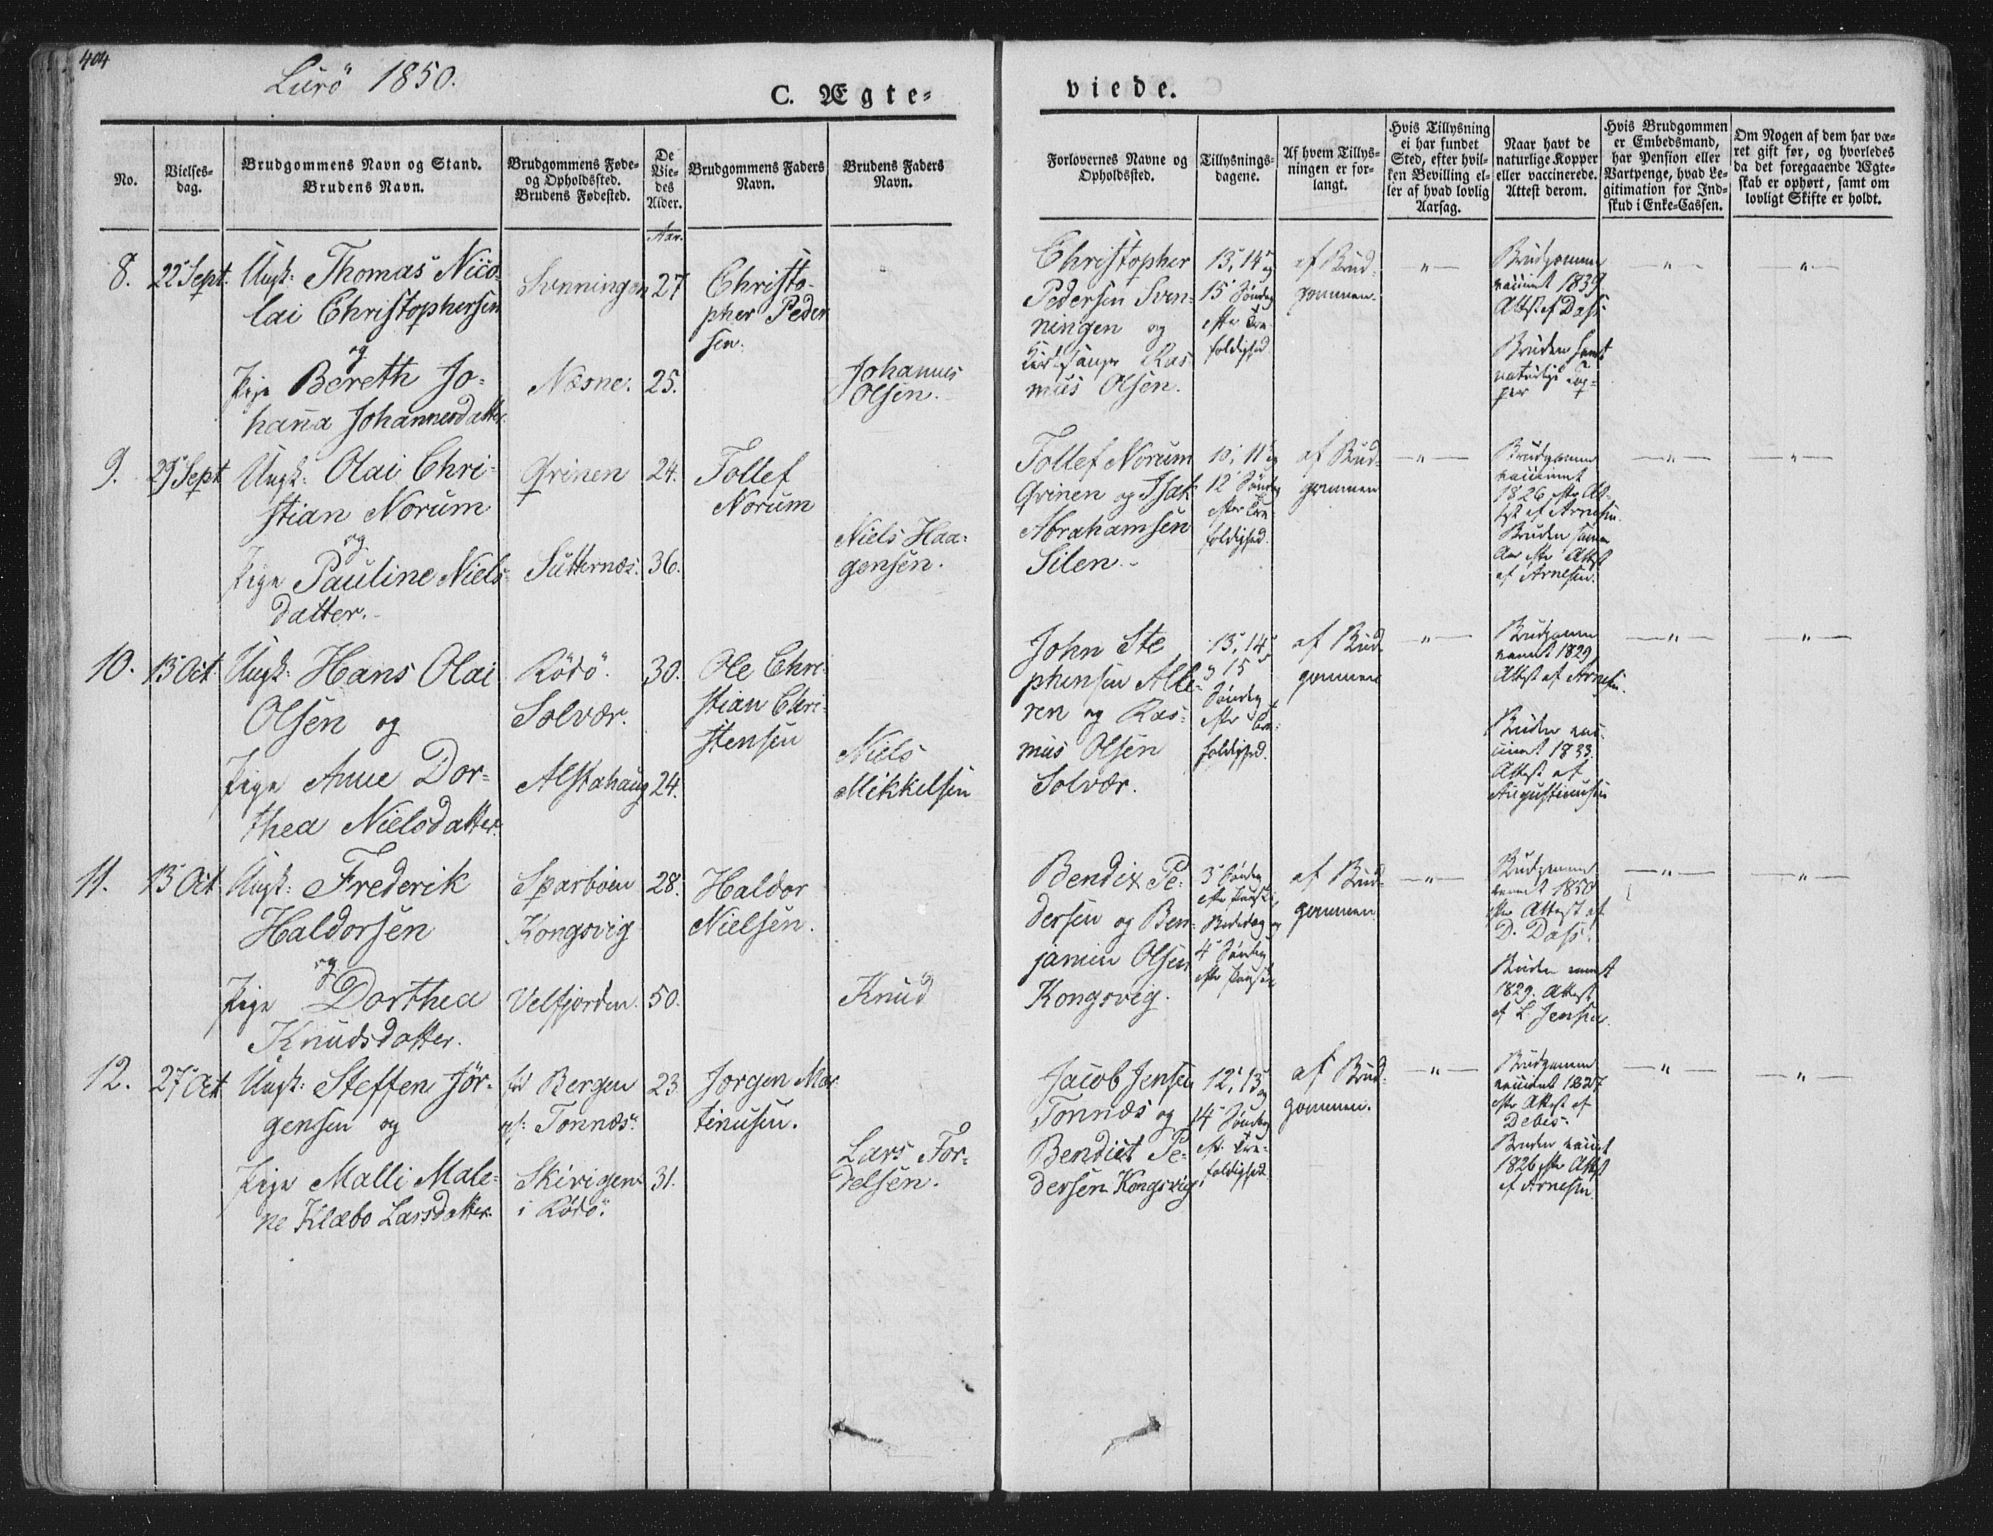 404
Lurö 1850.
C. Ægte-
viede.
No.
Vielses-
dag.
Brudgommens Navn og Stand.
Brudens Navn.
Brudgommens Føde-
og Opholdssted.
Brudens Fødested.
De
Vie-
des
Alder.
Brudgommens Faders
Navn.
Brudens Faders
Navn.
Forlovernes Navne og
Opholdssted.
Tillysnings-
dagene.
Af hvem Tillys-
ningen er for-
langt.
Hvis Tillysning
ei har fundet
Sted, efter hvil-
ken Bevilling el-
ler af hvad lovlig
Aarsag.
Naar havt de
naturlige Kopper
eller vaccinerede.
Attest derom.
Hvis Brudgommen
er Embedsmand,
har Pension eller
Vartpenge, hvad Le-
gitimation for Ind-
skud i Enke-Cassen.
Om Nogen af dem har væ-
ret gift før, og hvorledes
da det foregaaende Ægte-
skab er ophørt, samt om
lovligt Skifte er holdt.
Aar.
8.
22 Sept.
Ungk: Thomas Nico-
lai Christophersen
og
Pige Bereth Jo-
hanna Johannesdatter.
Svenningen
Næsne.
27
25.
Christo-
pher Peder
sen.
Johannes
Olsen.
Christopher
Pedersen Sven-
ningen og
Kirkesanger Ras
mus Olsen.
13, 14 og
15 Søndag
efter Tre-
foldighed
af Brud-
gommen.
— " —
Brudgomme
vaccinet 1839
Attest af Dass
Bruden havt
naturlige Kop-
per
— " —
— " —
9.
29 Sept
Ungk: Olai Chri-
stian Norum
og
Pige Pauline Niels-
datter.
Qvinen
Sütternæs.
24.
36.
Tollef
Norum
Niels Haa-
gensen.
Tollef Norum
Qvinen og Isak
Abrahamsen
Silen.
10, 11 og
12 Søndag
efter Tre-
foldighed.
af Brud-
gommen
— " —
Brudgomme
vaccinet
1826 efter At-
test af Arnesen.
Bruden samme
Aar efter Attest
af Arnesen.
— " —
— " —
10.
13 Oct
Ungk: Hans Olai
Olsen og
Pige Anne Dor-
thea Nielsdatter.
Rödö.
Solvær.
Alstahaug
30.
24.
Ole Chri-
stian Chri-
stensen
Niels
Mikkelsen
John Ste
phensen Alde-
ren og Ras-
mus Olsen
Solvær.
13, 14
o 15
Søndag
efter Tre-
foldighed.
af Brud
gommen
— " —
Brudgomme
vaccinet 1829
Attest af Arnesen.
Bruden vac-
cinet 1833.
Attest af
Augustinussen
— " —
— " —
11.
13 Oct
Ungk: Frederik
Haldorsen
og
Pige Dorthea
Knudsdatter.
Sparboen
Kongsvig
Velfjorden.
28.
50.
Haldor
Nielsen.
Knud
Bendix Pe-
dersen og Ben-
jamin Olsen
Kongsvig.
3 Søndag
efter Paaske,
Bededag og
4 Søndag
efter Paaske
af Brud-
gommen
— " —
Brudgomme
vaccinet 1850
efter Attest af
D. Dass.
Bruden vaccinet
1829. Attest
af L Jensen.
— " —
— " —
12.
27 Oct
Ungk: Steffen Jör-
gensen og
Pige Malli Male-
ne Klæbo Larsdatter.
fød Bergen
op: Tonnæs.
Skivigen
i Rödö.
23.
31.
Jorgen Mar
tinusen.
Lars Tor-
delsen.
Jacob Jensen
Tonnæs og
Bendict Pe-
dersen Kongsvig.
12, 13 og
14 Søndag
eft. Tre-
foldighed.
af Brud-
gommen.
— " —
Brudgomme
vaccinet 1827
efter Attest af
Debes.
Bruden vaccinet
1826 efter Attest
af Arnesen.
— " —
— " —